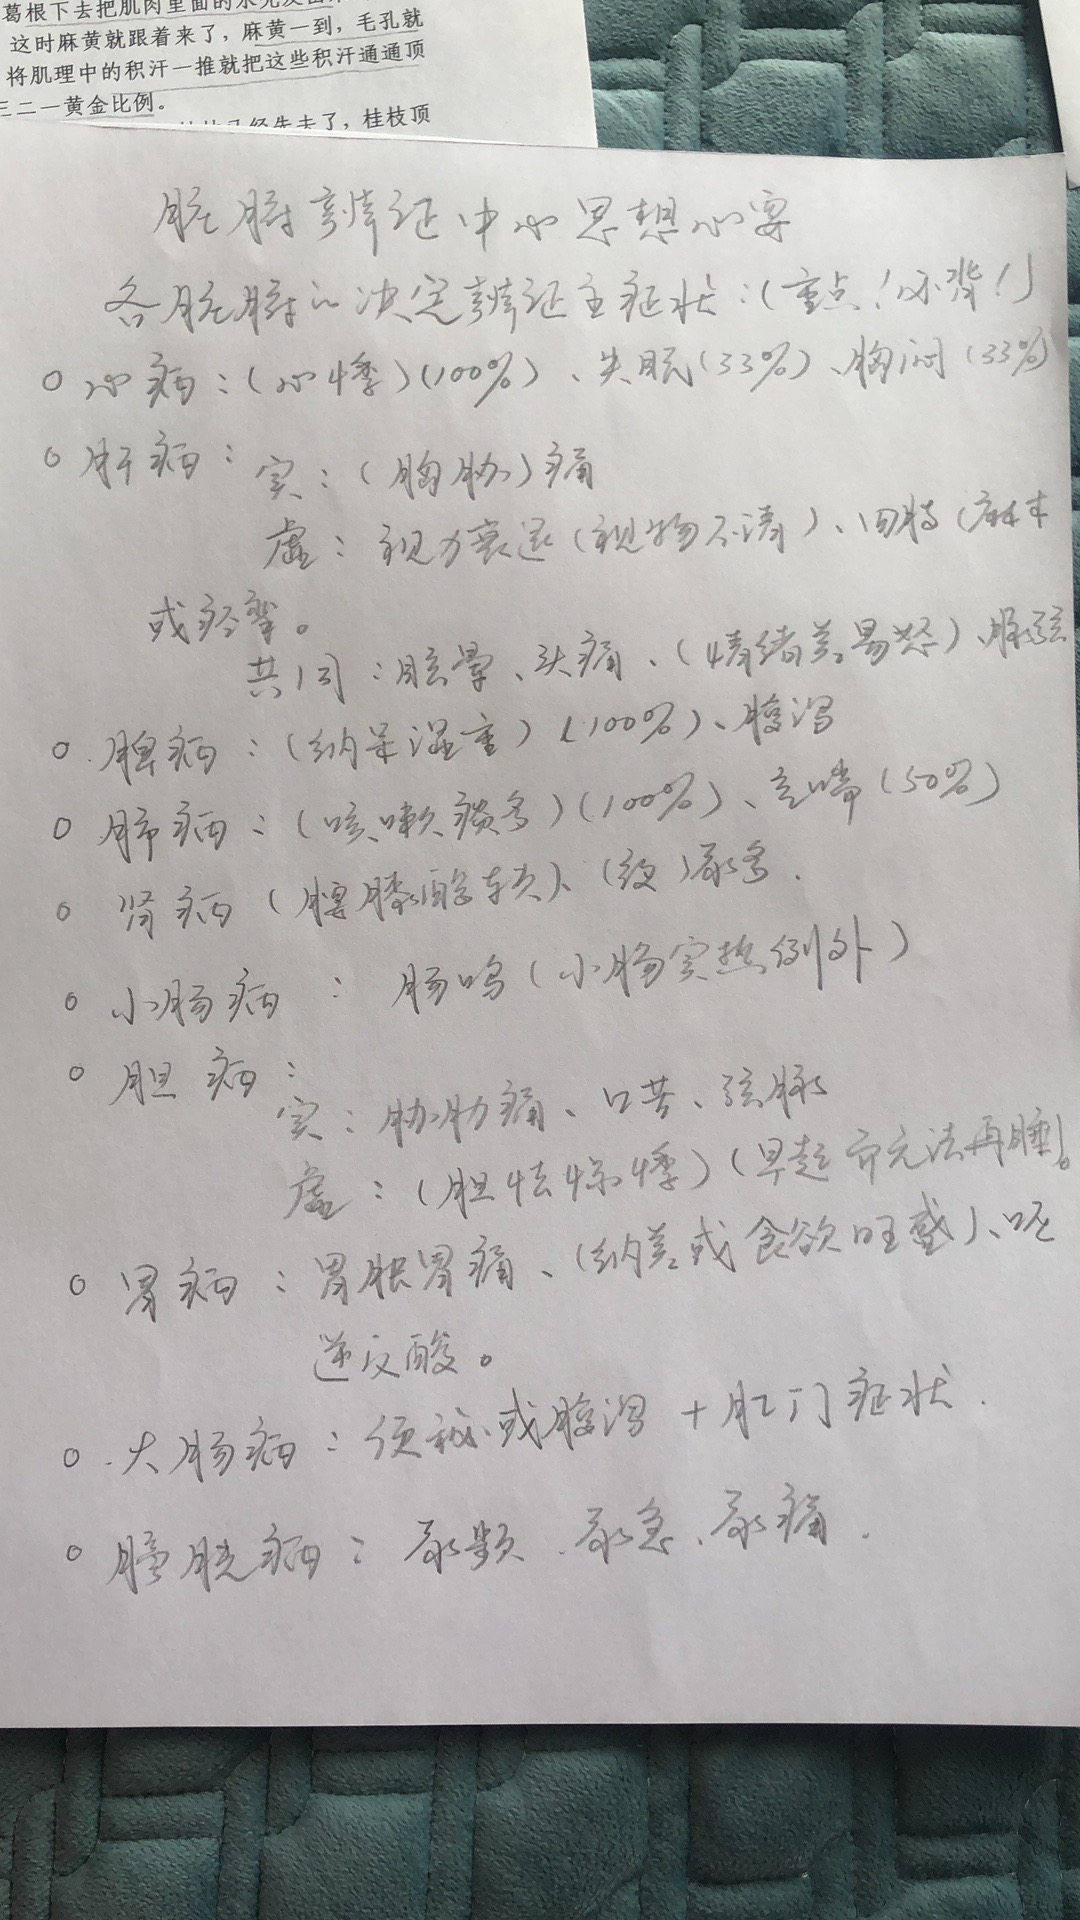 葛根下去把肌肉里面的水
这时麻黄就跟着来了，麻黄一到，毛孔就
将肌理中的积汗一推就把这些积汗通通顶
三二一黄金比例。
已经先去了，桂枝顶
脏腑辨证中心思想心要
各脏腑の决定辨证主症状：(重点！必背！)
○ 心病：(心悸)(100%)、失眠(33%)、胸闷(33%)
○ 肝病： 实：(胸胁)痛
虚：视力衰退(视物不清)、四肢(麻木
或痉挛。
共同：眩晕、头痛、(情绪差易怒)、脉弦
○ 脾病：(纳呆湿重)(100%)、腹泻
○ 肺病：(咳嗽痰多)(100%)、气喘(50%)
○ 肾病 (腰膝酸软)、(夜)尿多.
○ 小肠病 ： 肠鸣(小肠实热例外)
○ 胆病：
实：胁肋痛、口苦、弦脉
虚：(胆怯惊悸)(早起而无法再睡)。
○ 胃病：胃胀胃痛、(纳差或食欲旺盛)、呃
逆反酸。
○ 大肠病：便秘或腹泻 + 肛门症状.
○ 膀胱病：尿频、尿急、尿痛.